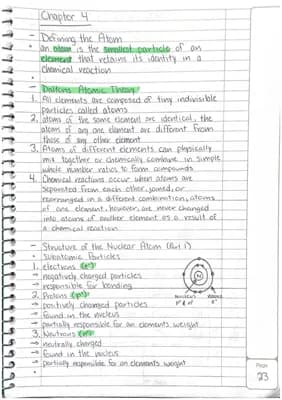 Chapter 4
- Defining the Atom
• an atom is the smallest particle of an
element that retains its identity in a
chemical reaction
•
- Daltons Atomic Theory
1. All elements are composed of tiny indivisible
particles called atoms
2. atoms of the same element are identical, the
atoms of any one element are different from
those of any other element
3. Atoms of different elements can physically
mix together or chemically combine in simple
whole number ratios to form compounds
4. Chemical reactions occur when atoms are
separated from each other, joined, or
rearranged in a different combination, atoms
of one element, however, are never changed
into atoms of another element as a result of
a chemical reaction
- Structure of the Nuclear Atom (Part 1)
• Subatomic Particles
1. electrons (e⁻)
→ negatively charged particles
→ responsible for bonding
2. Protons (p⁺)
→ positively charged particles
→ found in the nucleus
→ partially responsible for an elements weight
3. Neutrons (n⁰)
→ neutrally charged
→ found in the nucleus
→ partially responsible for an elements weight
•
N
Nucleus
Page
23